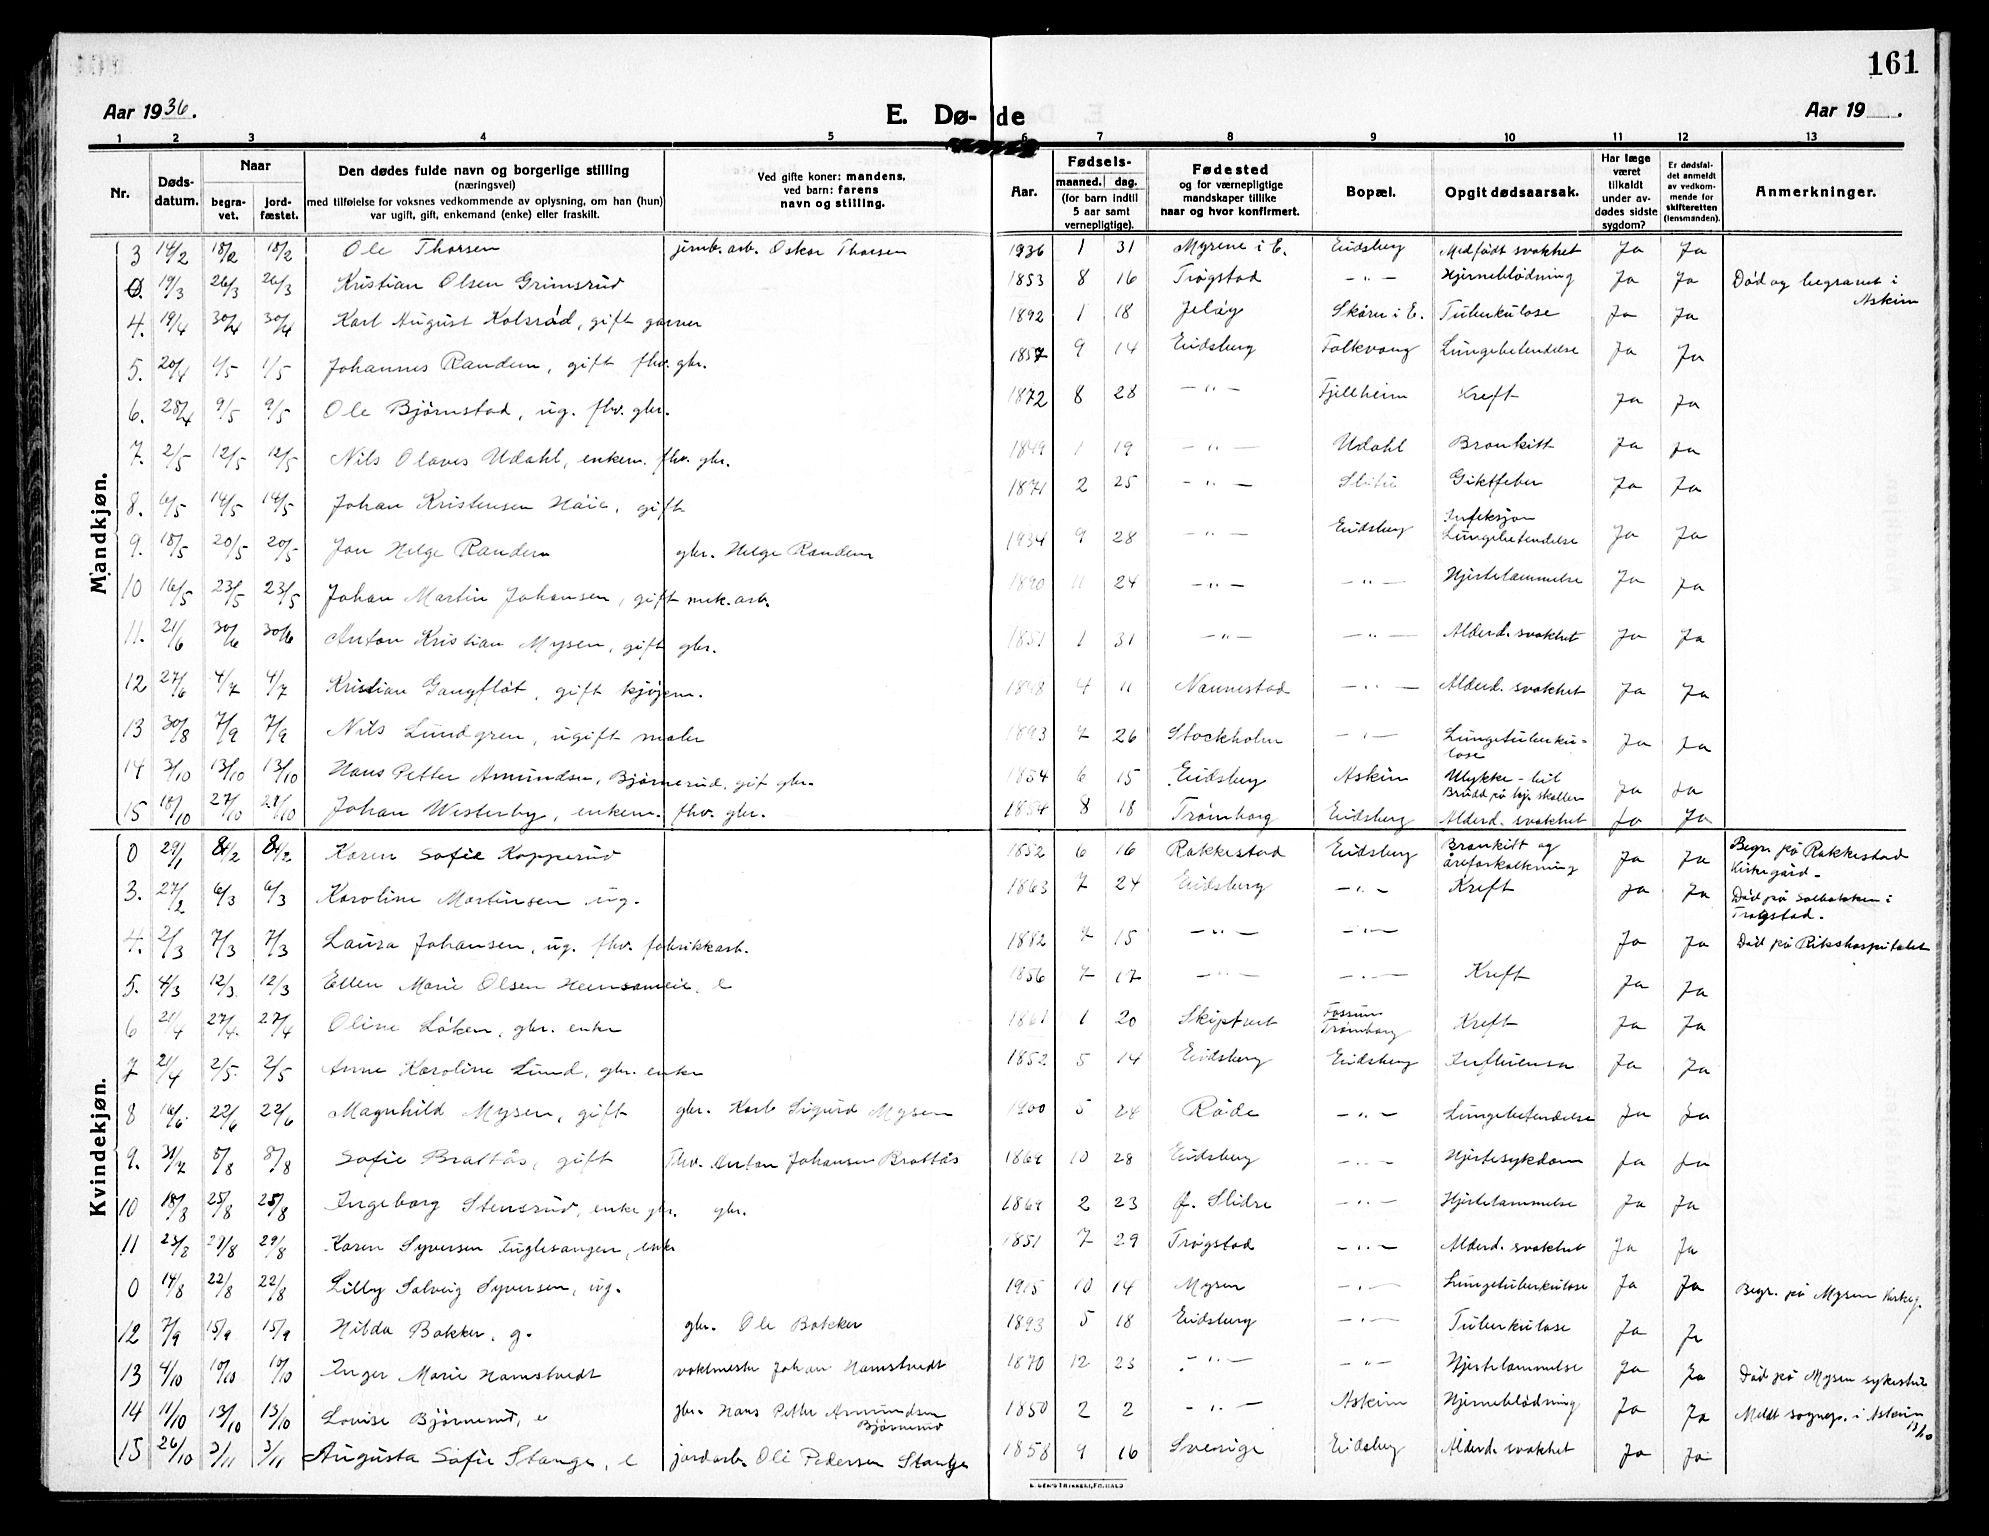 161
Aar 1936.
E. Dø- de
Aar 19 .
1 2 3 4 5 6 7 8 9 10 11 12 13
Nr.
Dødsdatum.
Naar
begravet.
jordfæstet.
Den dødes fulde navn og borgerlige stilling
(næringsvei)
med tilføielse for voksnes vedkommende av oplysning, om han (hun)
var ugift, gift, enkemand (enke) eller fraskilt.
Ved gifte koner: mandens,
ved barn: farens
navn og stilling.
Aar.
Fødsels-
maaned. dag.
(for barn indtil
5 aar samt
vernepligtige).
Fødested
og for værnepligtige
mandskaper tillike
naar og hvor konfirmert.
Bopæl.
Opgit dødsaarsak.
Har læge
været
tilkaldt
under avdødes sidste
sygdom?
Er dødsfaldet anmeldt
av vedkommende for
skifteretten
(lensmanden).
Anmerkninger.
Mandkjøn.
3 14/2 18/2 18/2 Ole Thorsen jernb. arb. Oskar Thorsen 1936 1 31 Myrene i E. Eidsberg Medfødt svakhet Ja Ja
0. 19/3 26/3 26/3 Kristian Olsen Grimsrud 1853 8 16 Trøgstad -"- Hjerneblødning Ja Ja Død og begravet i Askim
4. 19/4 30/4 30/4 Karl August Kolsrød, gift garver 1892 1 18 Jeløy Skøru i E. Tuberkulose Ja Ja
5. 20/4 1/5 1/5 Johannes Randem, gift fhv. gbr. 1857 9 14 Eidsberg Folkvang Lungebetendelse Ja Ja
6. 28/4 9/5 9/5 Ole Bjørnstad, ug. fhv. gbr. 1872 8 28 -"- Fjellheim Kreft Ja Ja
7. 2/5 12/5 12/5 Nils Olaves Udahl, enkem. fhv. gbr. 1849 1 19 -"- Udahl Bronkitt Ja Ja
8. 6/5 14/5 14/5 Johan Kristensen Haie, gift 1871 2 25 -"- Slitu Giktfeber Ja Ja
9. 18/5 20/5 20/5 Jan Helge Randem gbr. Helge Randem 1934 9 28 -"- Eidsberg Infeksjon Lungebetendelse Ja Ja
10 16/5 23/5 23/5 Johan Martin Johansen, gift mek. arb. 1890 11 24 -"- -"- Hjertelammelse Ja Ja
11. 21/6 30/6 30/6 Anton Kristian Mysen, gift gbr. 1851 1 31 -"- -"- Alderd. svakhet Ja Ja
12 27/6 4/7 4/7 Kristian Gangfløt, gift kjøpm. 1848 4 11 Nannestad -"- Alderd. svakhet Ja Ja
13 30/8 7/9 7/9 Nils Lundgren, ugift maler 1893 7 26 Stockholm -"- Lungetuberkulose Ja Ja
14 3/10 13/10 13/10 Hans Petter Amundsen, Bjørnerud, gift gbr. 1854 6 15 Eidsberg Askim Ulykke - bil Brudd på hj. skallen Ja Ja
15 18/10 27/10 27/10 Johan Westerby, enkem. fhv. gbr. 1854 8 18 Trømborg Eidsberg Alderd. svakhet Ja Ja
Kvindekjøn.
0 29/1 4/2 4/2 Karen Sofie Kopperud 1852 6 16 Rakkestad Eidsberg Bronkitt og åreforkalkning Ja Ja Begr. på Rakkestad Kirkegård-
3. 27/2 6/3 6/3 Karoline Martinsen ug. 1863 7 24 Eidsberg -"- Kreft Ja Ja Død på Solbakken i Trøgstad.
4. 2/3 7/3 7/3 Laura Johansen, ug. fhv. fabrikkarb. 1882 7 15 -"- -"- Ja Ja Død på Rikshospitalet
5. 4/3 12/3 12/3 Ellen Marie Olsen Heensameie, e 1856 7 17 -"- -"- Kreft Ja Ja
6 21/4 27/4 27/4 Oline Løken, gbr. enke 1861 1 20 Skiptvet Fossum Trømborg Kreft Ja Ja
7 21/4 2/5 2/5 Anne Karoline Lund, gbr. enke 1852 5 14 Eidsberg Eidsberg Influensa Ja Ja
8 16/6 22/6 22/6 Magnhild Mysen, gift gbr. Karl Sigurd Mysen 1900 5 24 Råde -"- Lungebetendelse Ja Ja
9. 31/7 8/8 8/8 Sofie Brattås, gift fhv. Anton Johansen Brattås 1864 10 28 Eidsberg -"- Hjertesykdom Ja Ja
10 18/8 25/8 25/8 Ingeborg Stensrud, enke gbr. gbr. 1864 2 23 Ø. Slidre -"- Hjertelammelse Ja Ja
11 23/8 29/8 29/8 Karen Syversen Fuglesangen, enke 1851 7 29 Trøgstad -"- Alderd. svakhet Ja Ja
0 14/8 22/8 22/8 Lilly Solveig Syversen, ug. 1915 10 14 Mysen -"- Lungetuberkulose Ja Ja Begr. på Mysen Kirkeg.
12 7/9 15/9 15/9 Hilda Bakker, g. gbr. Ole Bakker 1893 5 18 Eidsberg -"- Tuberkulose Ja Ja
13 4/10 10/10 10/10 Inger Marie Hamstvedt vaktmester Johan Hamstvedt 1870 12 23 -"- -"- Hjertelammelse Ja Ja Død på Mysen sykestue
14 11/10 13/10 13/10 Louise Bjørnerud, e gbr. Hans Petter Amundsen Bjørnerud 1850 2 2 -"- Askim Hjerneblødning Ja Ja Meldt sognepr. i Askim 13/10
15 26/10 3/11 3/11 Augusta Sofie Stange, e jordarb. Ole Pedersen Stange 1858 9 16 Sverige Eidsberg Alderd. svakhet Ja Ja